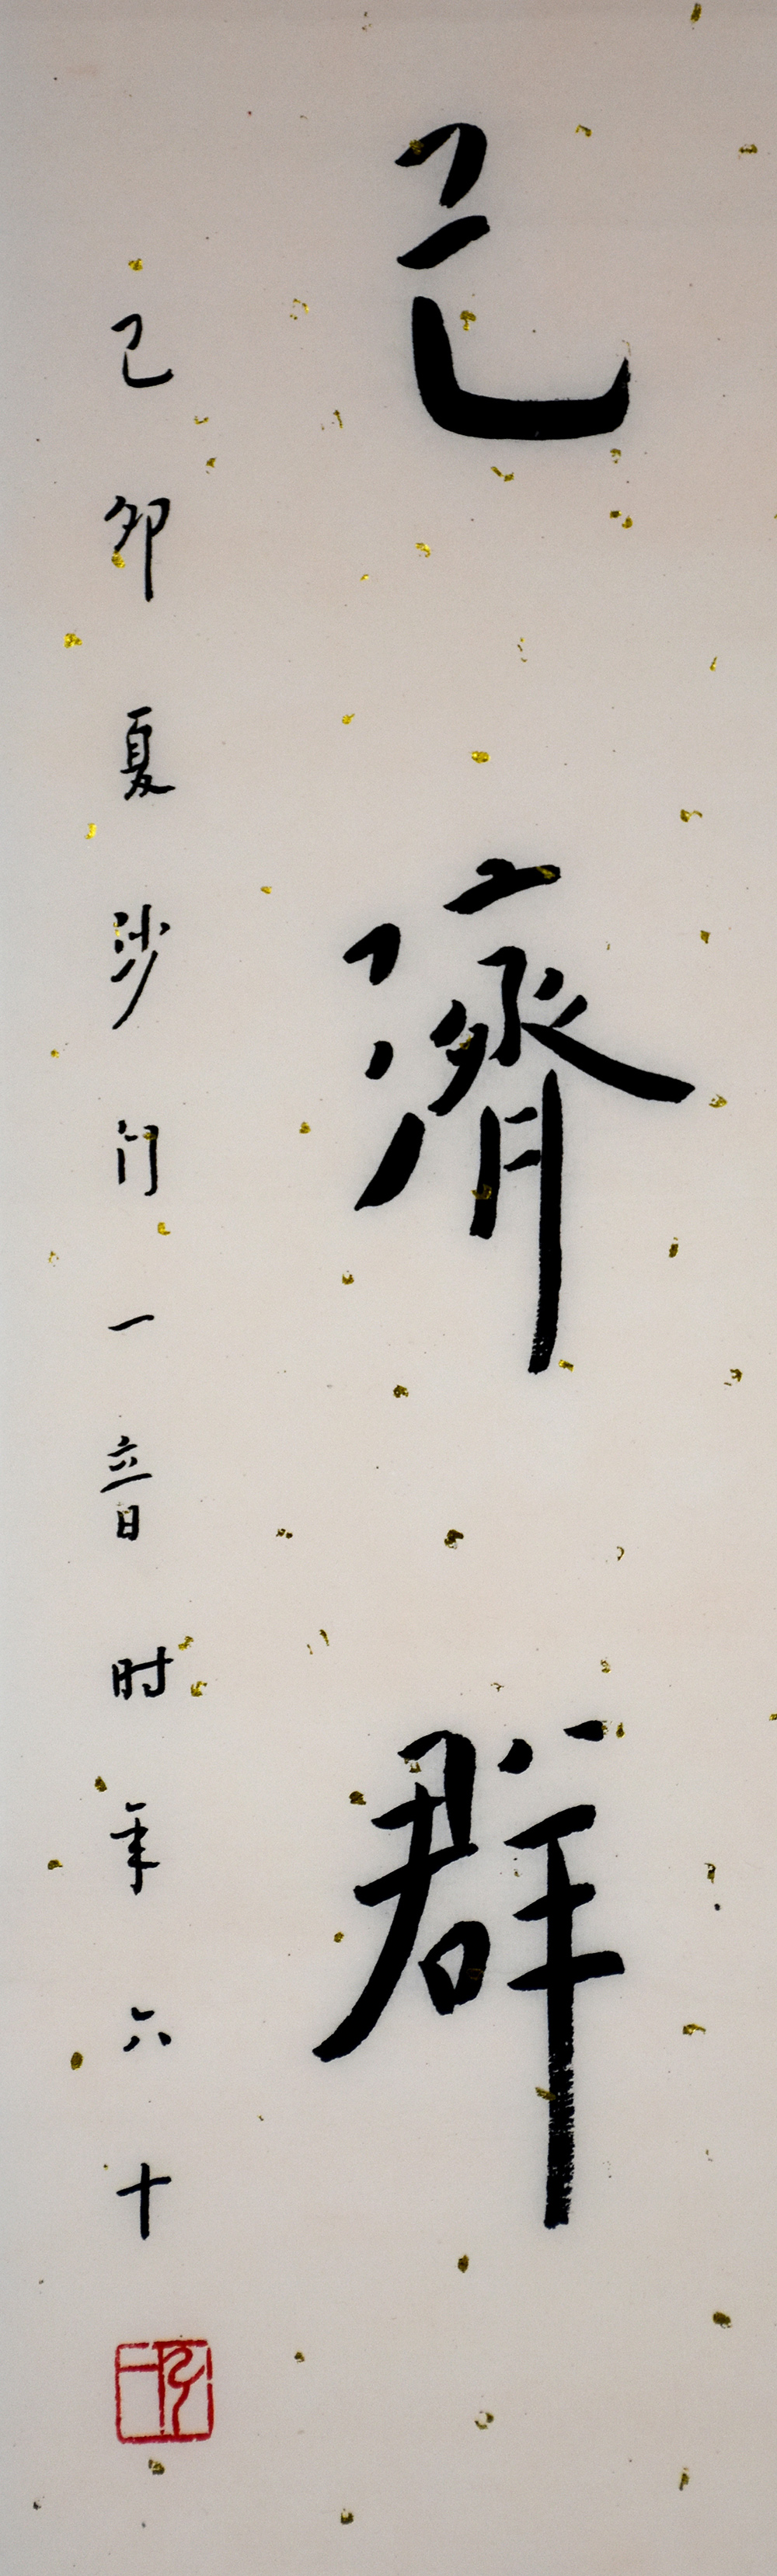 己濟群
己卯夏沙门一音时年六十